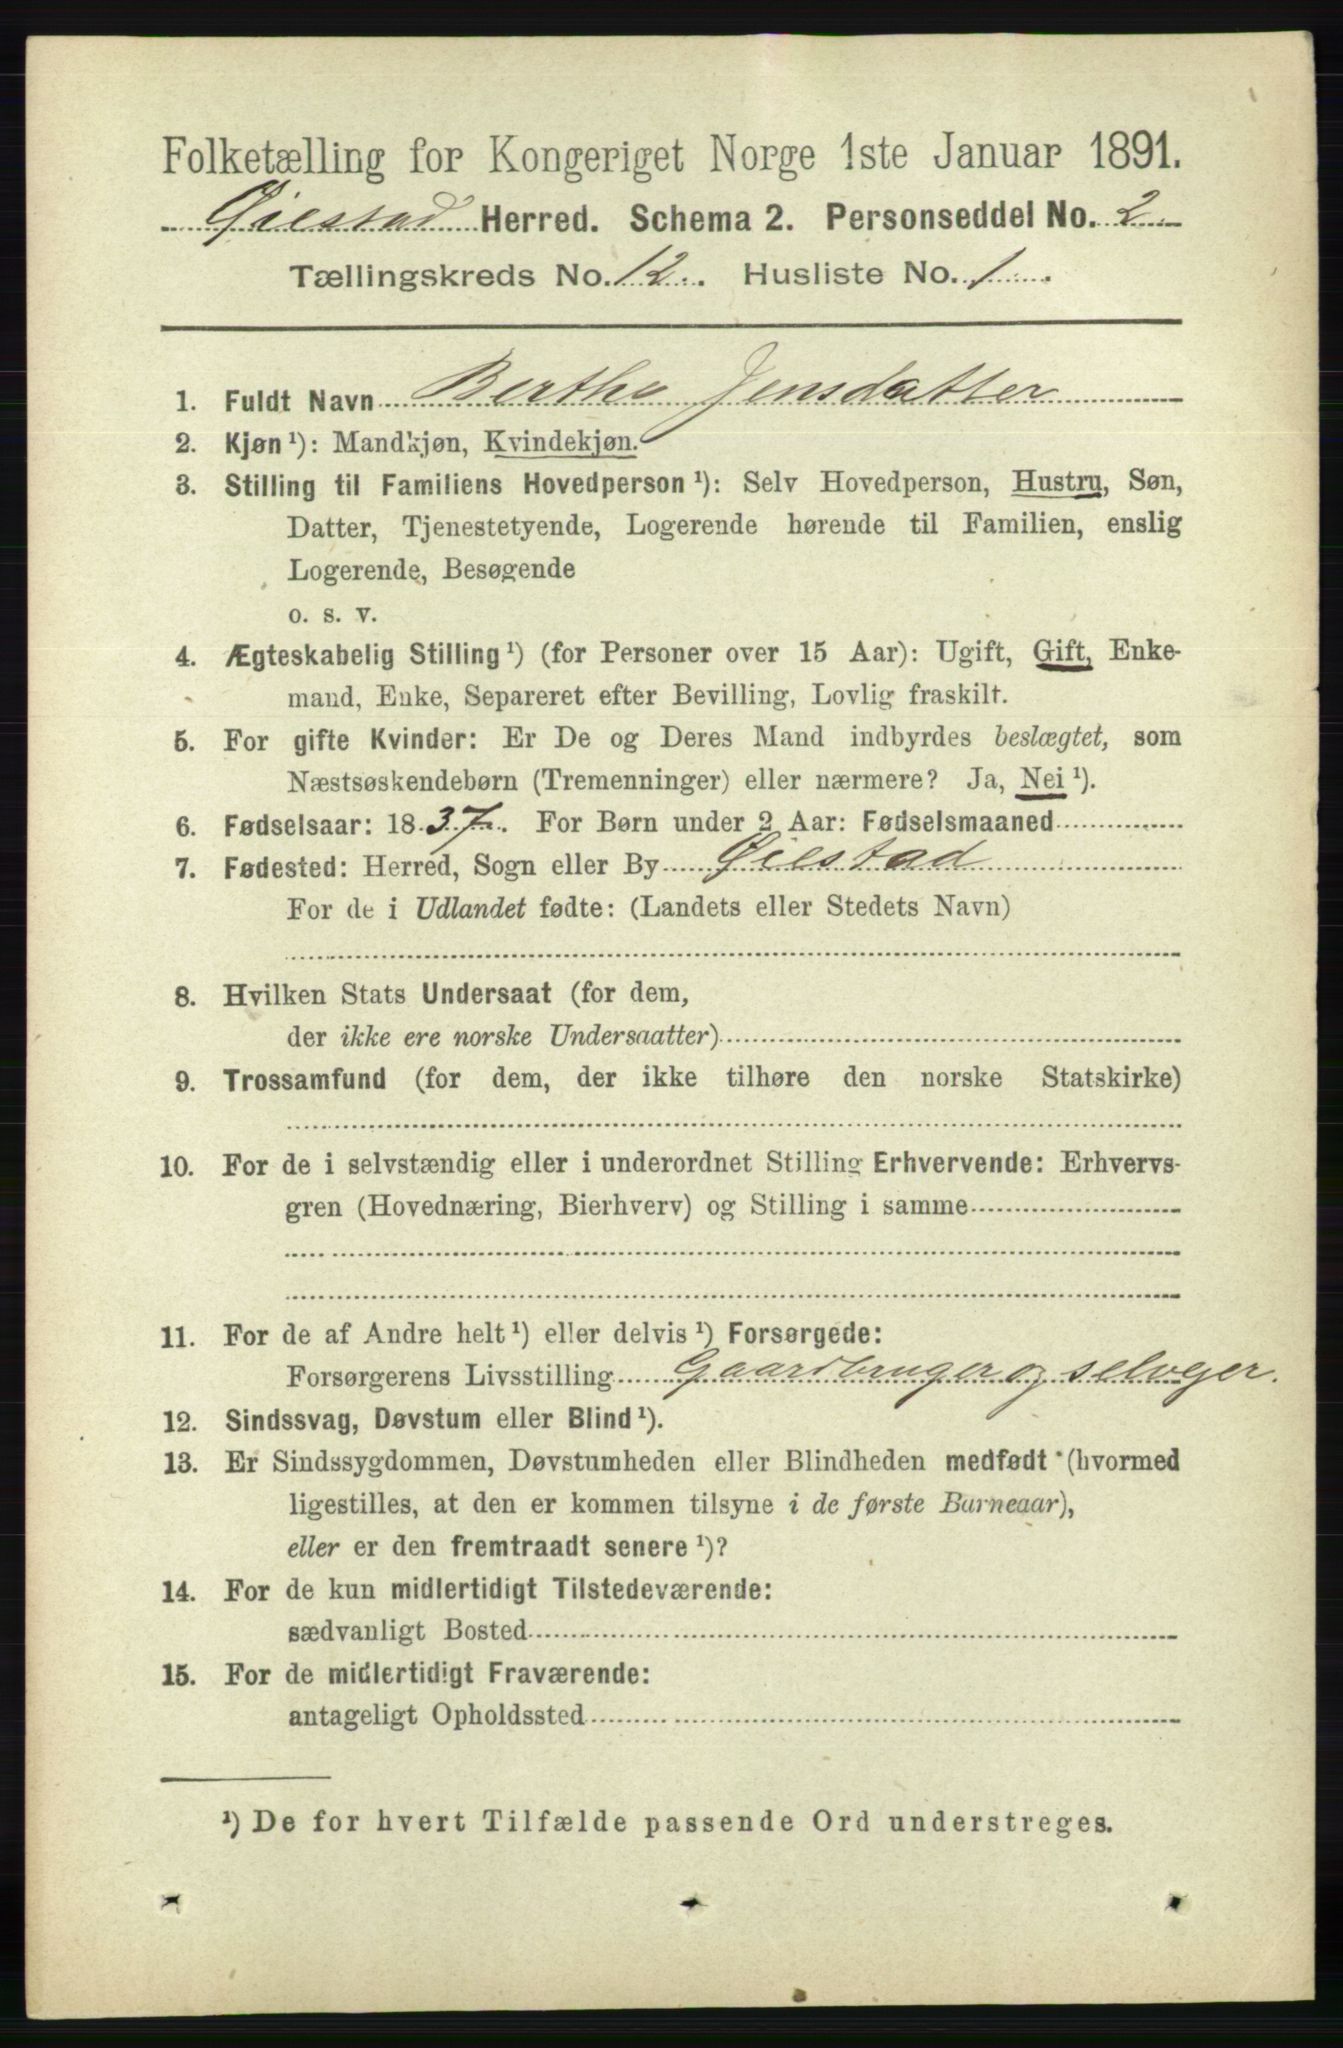 Folketælling for Kongeriget Norge 1ste Januar 1891.
Øiestad Herred. Schema 2. Personseddel No. 2
Tællingskreds No. 12. Husliste No. 1
1. Fuldt Navn Berthe Jensdatter
2. Kjøn ¹): Mandkjøn, Kvindekjøn.
3. Stilling til Familiens Hovedperson ¹): Selv Hovedperson, Hustru, Søn,
Datter, Tjenestetyende, Logerende hørende til Familien, enslig
Logerende, Besøgende
o. s. v.
4. Ægteskabelig Stilling ¹) (for Personer over 15 Aar): Ugift, Gift, Enke-
mand, Enke, Separeret efter Bevilling, Lovlig fraskilt.
5. For gifte Kvinder: Er De og Deres Mand indbyrdes beslægtet, som
Næstsøskendebørn (Tremenninger) eller nærmere? Ja, Nei ¹).
6. Fødselsaar: 1837. For Børn under 2 Aar: Fødselsmaaned
7. Fødested: Herred, Sogn eller By Øiestad
For de i Udlandet fødte: (Landets eller Stedets Navn)
8. Hvilken Stats Undersaat (for dem,
der ikke ere norske Undersaatter)
9. Trossamfund (for dem, der ikke tilhøre den norske Statskirke)
10. For de i selvstændig eller i underordnet Stilling Erhvervende: Erhvervs-
gren (Hovednæring, Bierhverv) og Stilling i samme
11. For de af Andre helt ¹) eller delvis ¹) Forsørgede:
Forsørgerens Livsstilling Gaardbruger og selvejer.
12. Sindssvag, Døvstum eller Blind ¹).
13. Er Sindssygdommen, Døvstumheden eller Blindheden medfødt (hvormed
ligestilles, at den er kommen tilsyne i de første Barneaar),
eller er den fremtraadt senere ¹)?
14. For de kun midlertidigt Tilstedeværende:
sædvanligt Bosted
15. For de midlertidigt Fraværende:
antageligt Opholdssted
¹) De for hvert Tilfælde passende Ord understreges.